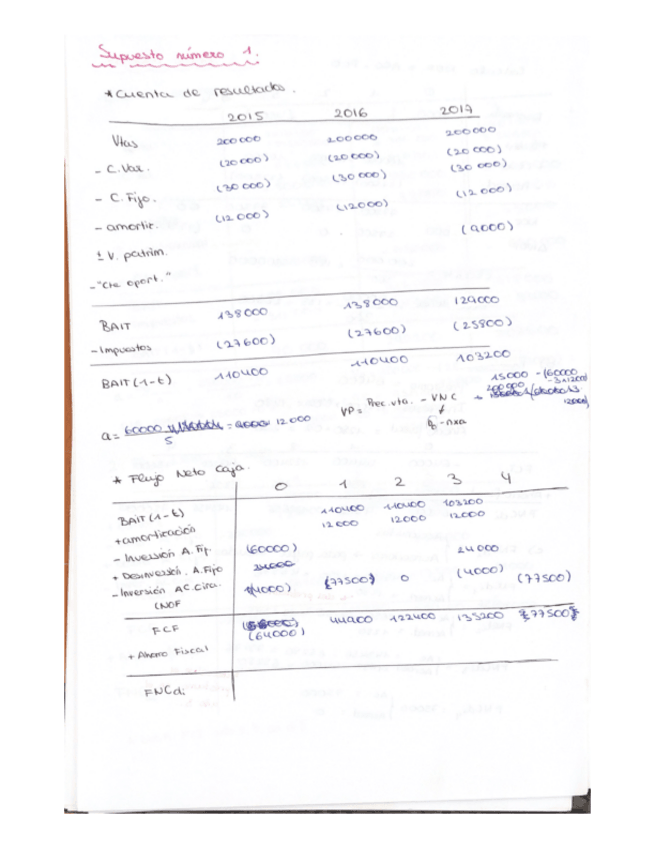 Supuesto número 1.
* Cuenta de resultados.
2015 2016 2017
Vtas 200000 200000 200000
- C. Var. (20000) (20000) (20000)
- C. Fijo. (30000) (30000) (30000)
- amortiz. (12000) (12000) (12000)
± V. patrim. (9000)
- "Cte oport."
BAIT 138000 138000 129000
- Impuestos (27600) (27600) (25800)
BAIT (1-t) 110400 110400 103200
15000 - (60000
- 3x12000)
a = 60000 / 5 = 12000
VP = Prec. vta. - VNC
- nxa
* Flujo Neto Caja.
0 1 2 3 4
BAIT (1-t) 110400 110400 103200
+ amortización 12000 12000 12000
- Inversión A. Fijo (60000)
+ Desinversión. A. Fijo 24000
- Inversión AC. Circ. (4000) (77500) 0 (4000) (77500)
(NOF
FCF (64000) 44900 122400 135200 77500
+ Ahorro Fiscal
FNCdi